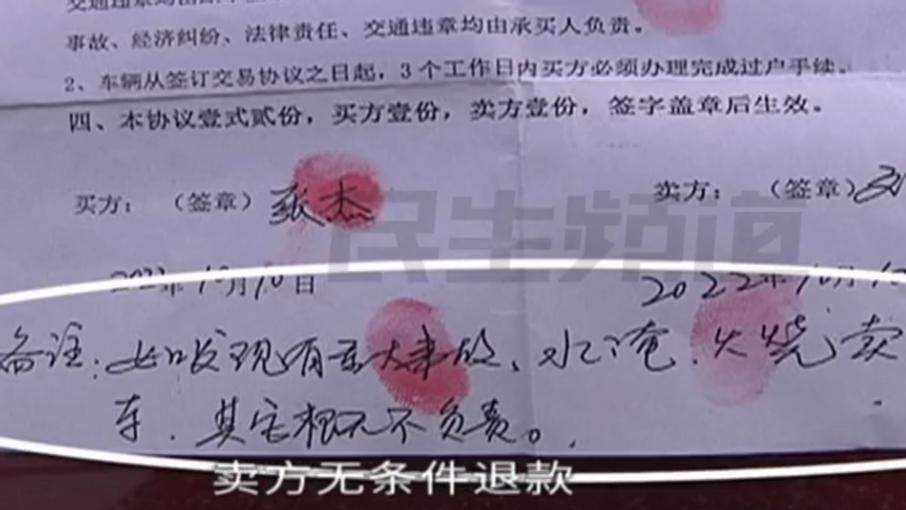 交通违章均由
事故、经济纠纷、法律责任、交通违章均由承买人负责。
2、车辆从签订交易协议之日起，3个工作日内买方必须办理完成过户手续。
四、本协议壹式贰份，买方壹份，卖方壹份，签字盖章后生效。
买方：（签章）张杰
卖方：（签章）
民生频道
2022年10月10日
2022年10月10
备注：如发现有重大事故、水淹、火烧卖
车．其它概不负责。
卖方无条件退款